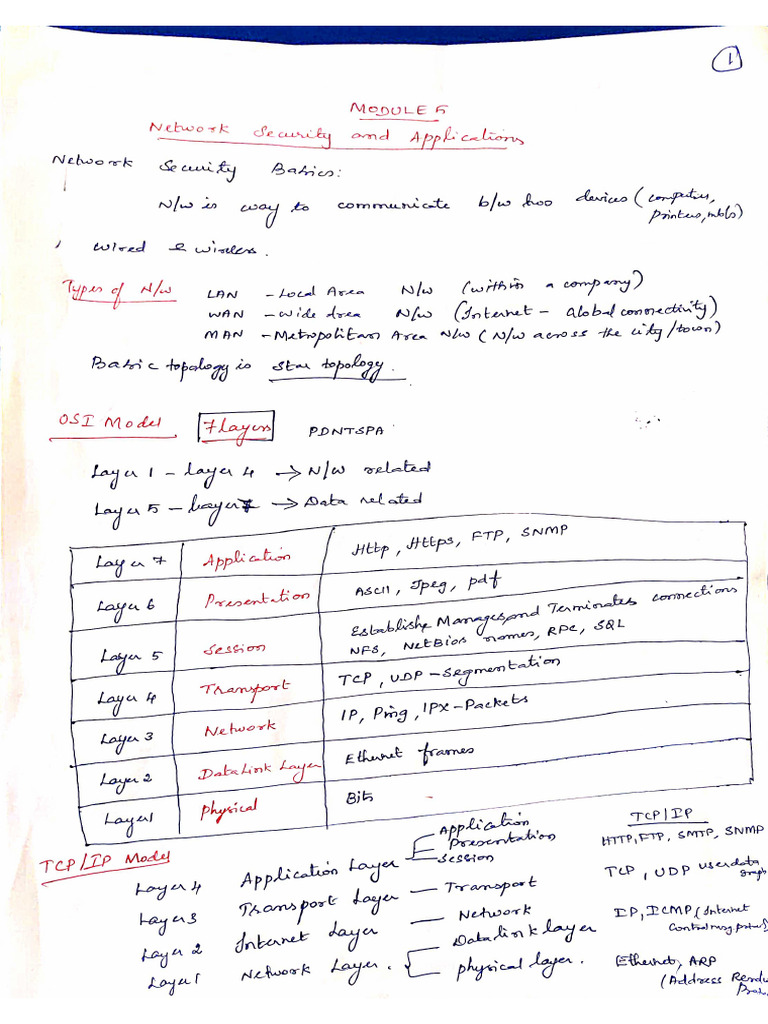 1
MODULE 5
Network Security and Applications
Network Security Basics:
N/w is way to communicate b/w two devices (computers,
printers, mb/s)
Wired & wireless.
Types of N/w LAN - Local Area N/w (within a company)
WAN - Wide Area N/w (Internet - Global connectivity)
MAN - Metropolitan Area N/w (N/w across the city/town)
Basic topology is Star topology.
OSI Model 7 layers PDNTSPA
Layer 1 - Layer 4 → N/w related
Layer 5 - Layer 7 → Data related
Layer 7 Application Http, Https, FTP, SNMP
Layer 6 Presentation ASCII, Jpeg, pdf
Layer 5 Session Establishe Manages, and Terminates connections
NFS, NetBios names, RPC, SQL
Layer 4 Transport TCP, UDP - Segmentation
Layer 3 Network IP, Ping, IPX - Packets
Layer 2 DataLink Layer Ethernet frames
Layer 1 Physical Bits
TCP/IP Model
TCP/IP
Layer 4 Application Layer Application Presentation Session HTTP, FTP, SMTP, SNMP
Layer 3 Transport Layer - Transport TCP, UDP userdata
graph
Layer 2 Internet Layer - Network IP, ICMP (Internet
Control msg
Layer 1 Network Layer. Datalink layer physical layer. Ethernet, ARP
(Address